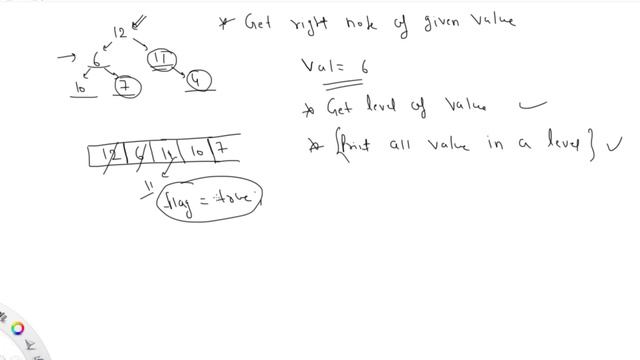 * Get right node of given value
12
6 11
10 7 4
Val = 6
* Get level of value
* {Print all value in a level}
12 6 11 10 7
11
flag = true